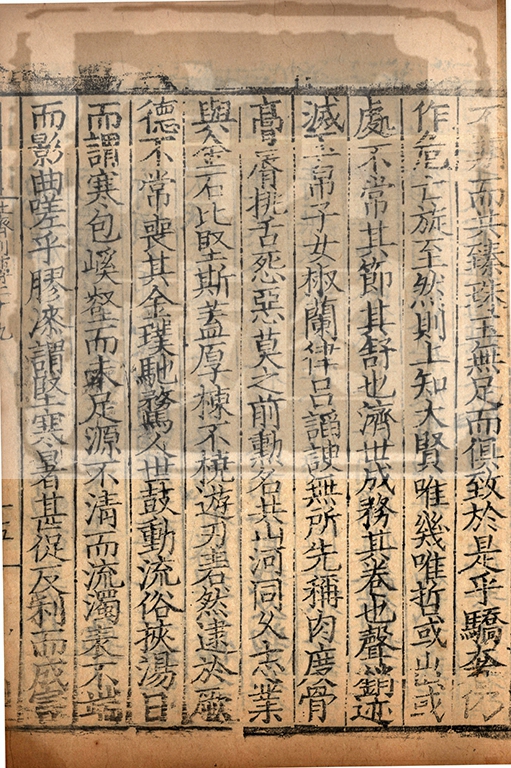 不期而其臻珠玉無足而俱致於是乎驕奢仍
作危亡旋至然則上知大賢唯幾唯哲或出或
處不常其節其舒也濟世成務其卷也聲銷迹
滅玉帛子女椒蘭律呂謟諛無所先稱肉度骨
膏脣挑舌怨惡莫之前勳名共山河同久志業
與金石比堅斯蓋厚棟不橈遊刃砉然逮於厥
德不常喪其金璞馳騖人世鼓動流俗挾湯日
而謂寒包嵠壑而未足源不清而流濁表不端
而影曲嗟乎膠漆謂堅寒暑甚促反利而成害